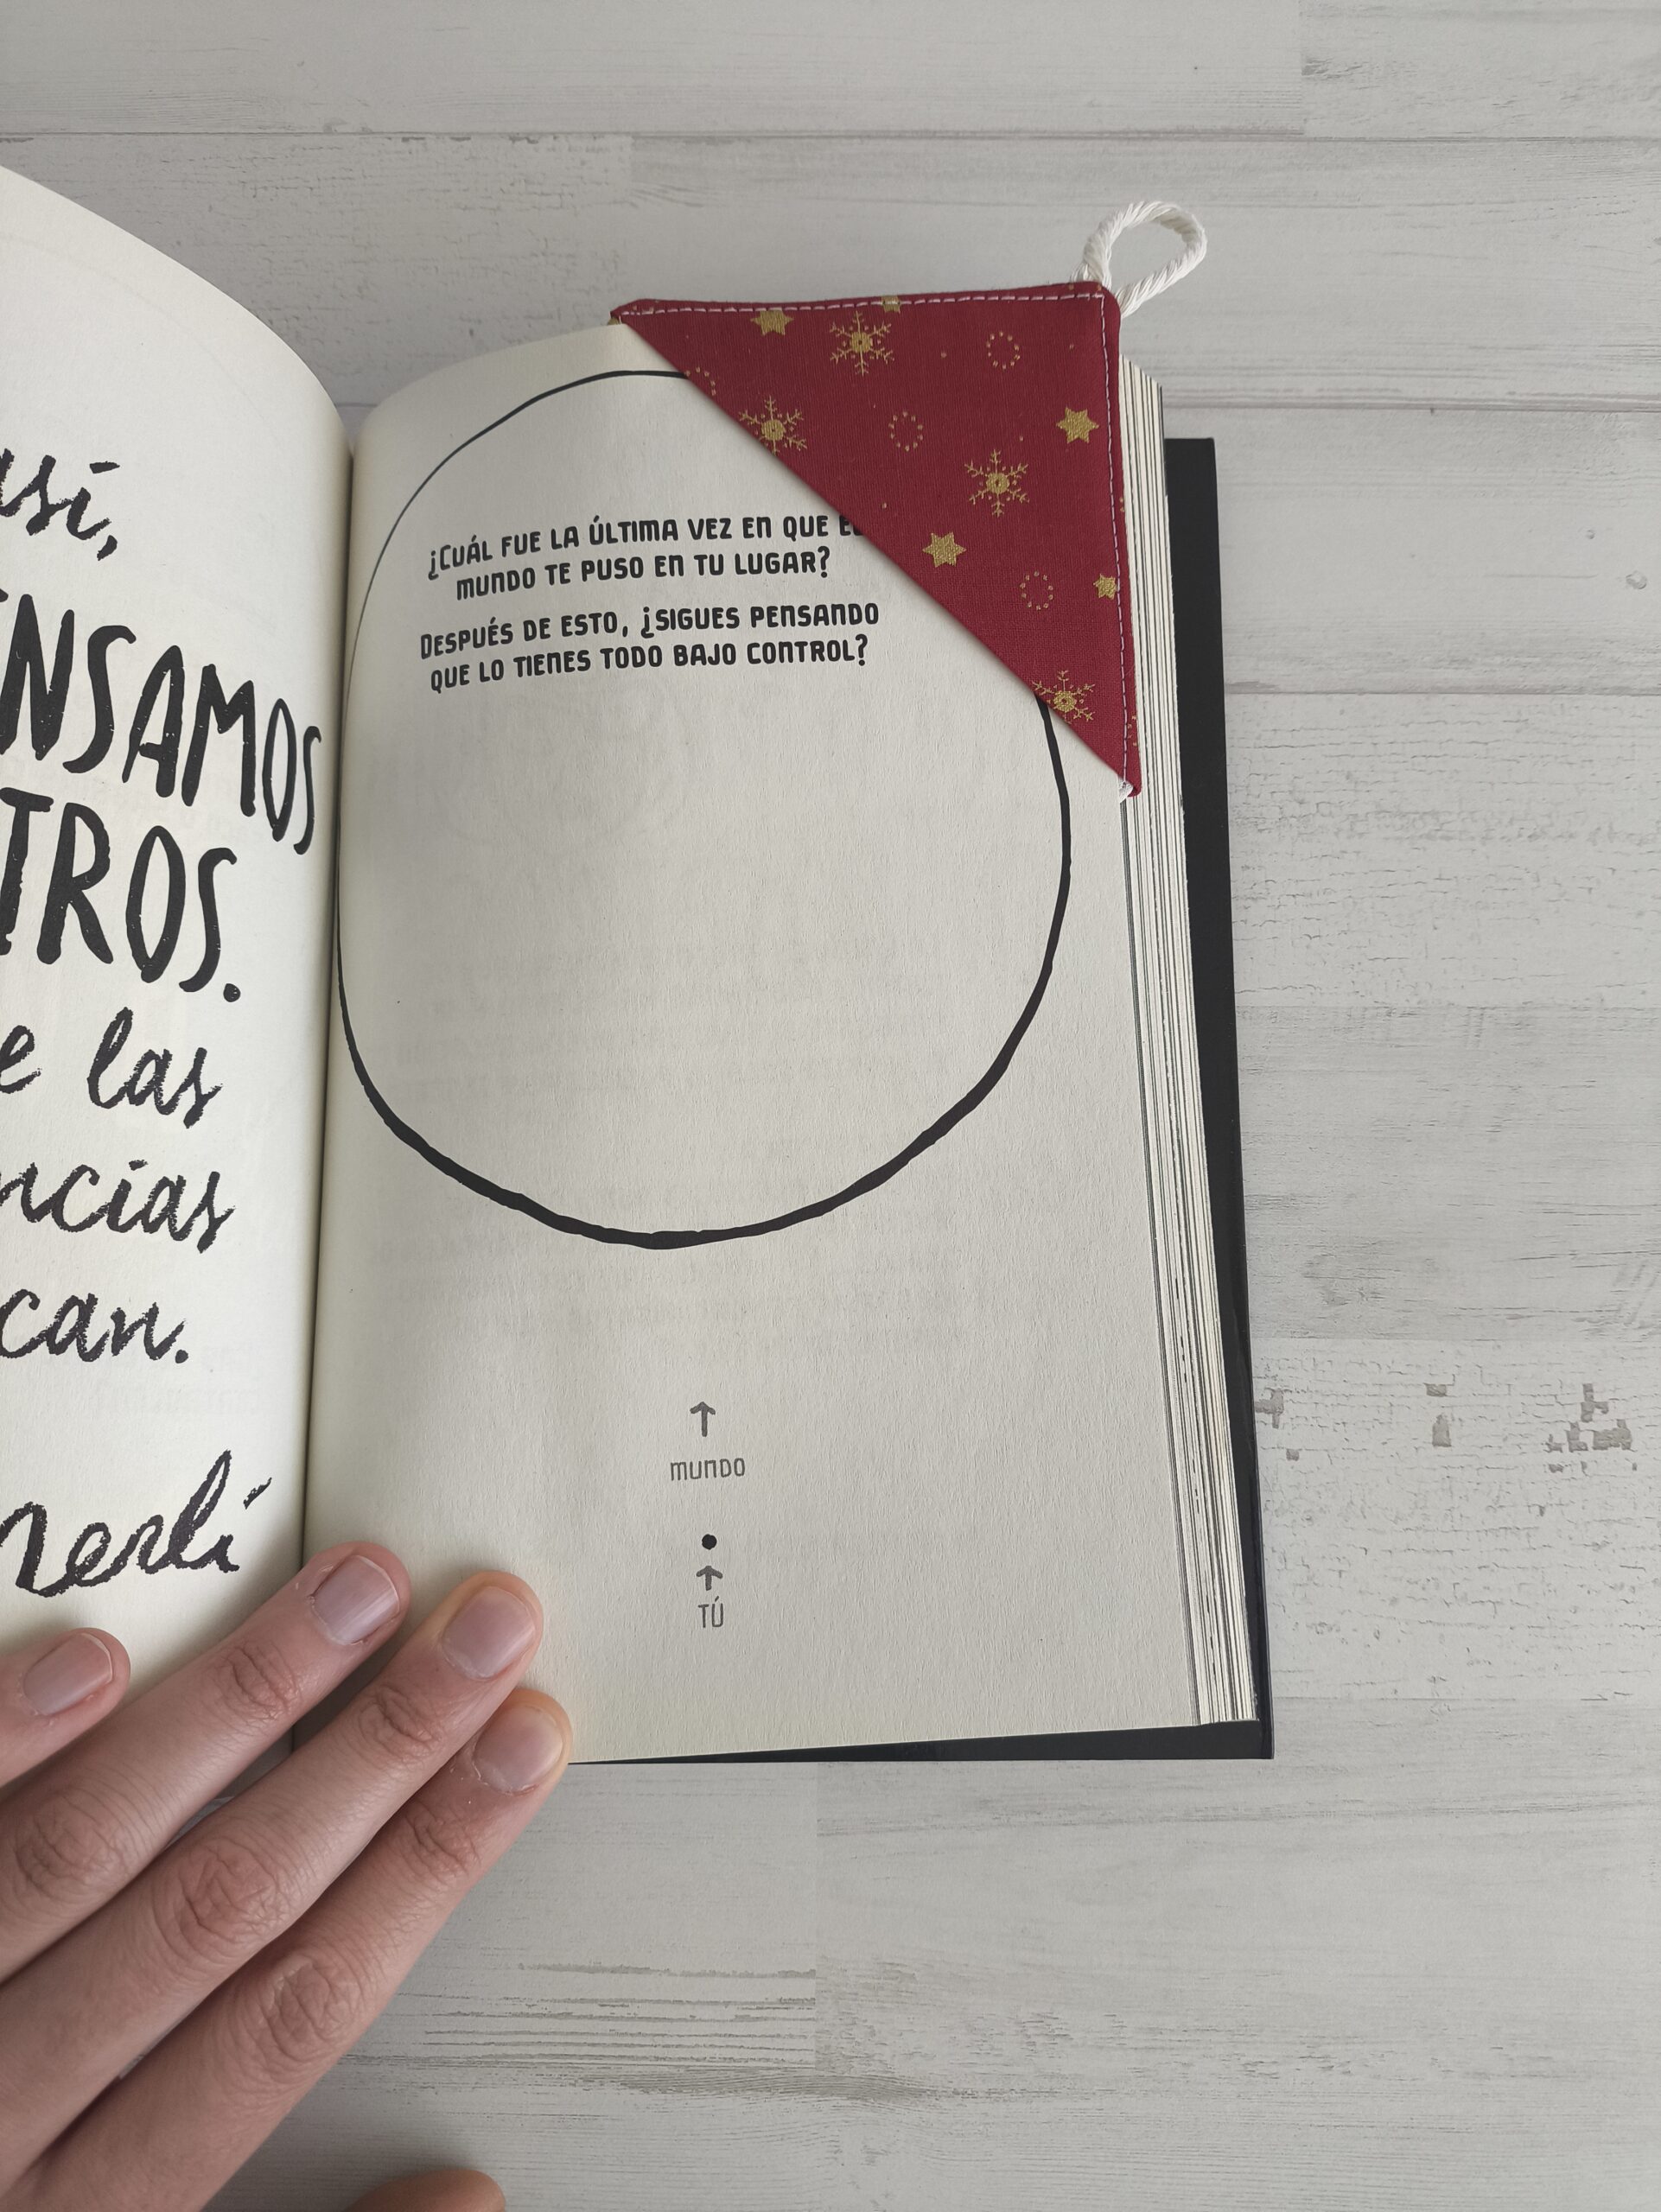 así,
NSAMOS
TROS.
e las
ncias
can.
¿CUÁL FUE LA ÚLTIMA VEZ EN QUE
MUNDO TE PUSO EN TU LUGAR?
DESPUÉS DE ESTO, ¿SIGUES PENSANDO
QUE LO TIENES TODO BAJO CONTROL?
MUNDO
TÚ